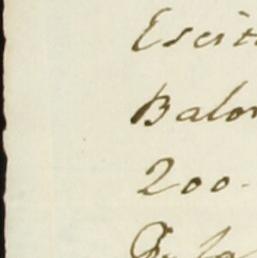 Escrit
Balor
200.